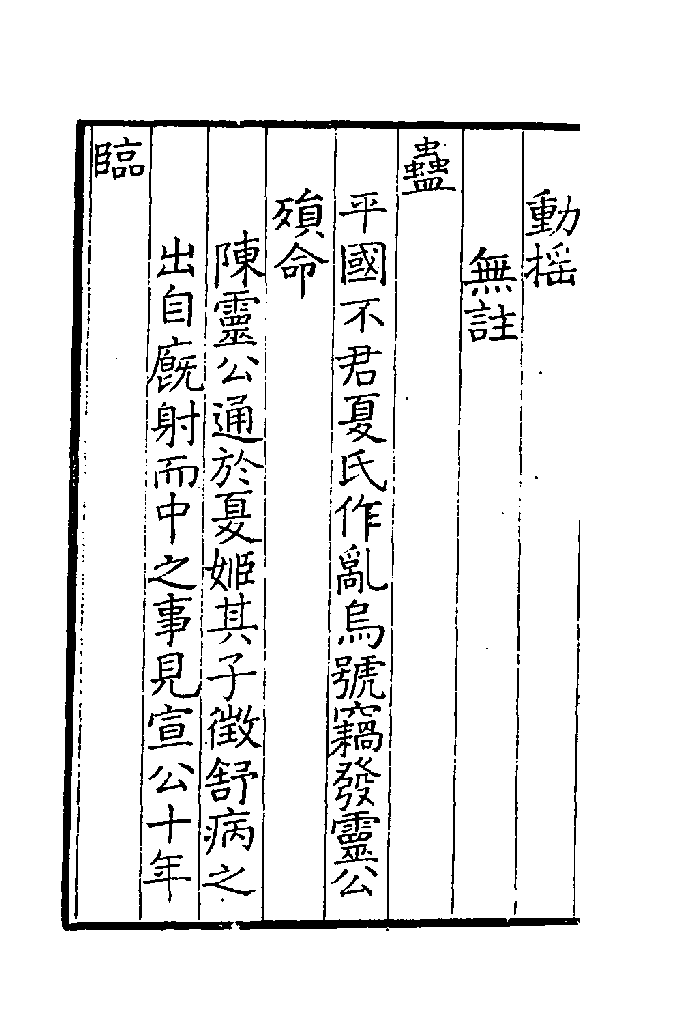 動搖
無註
蠱
平國不君夏氏作亂烏號竊發靈公
殞命
陳靈公通於夏姬其子徵舒病之
出自廐射而中之事見宣公十年
臨